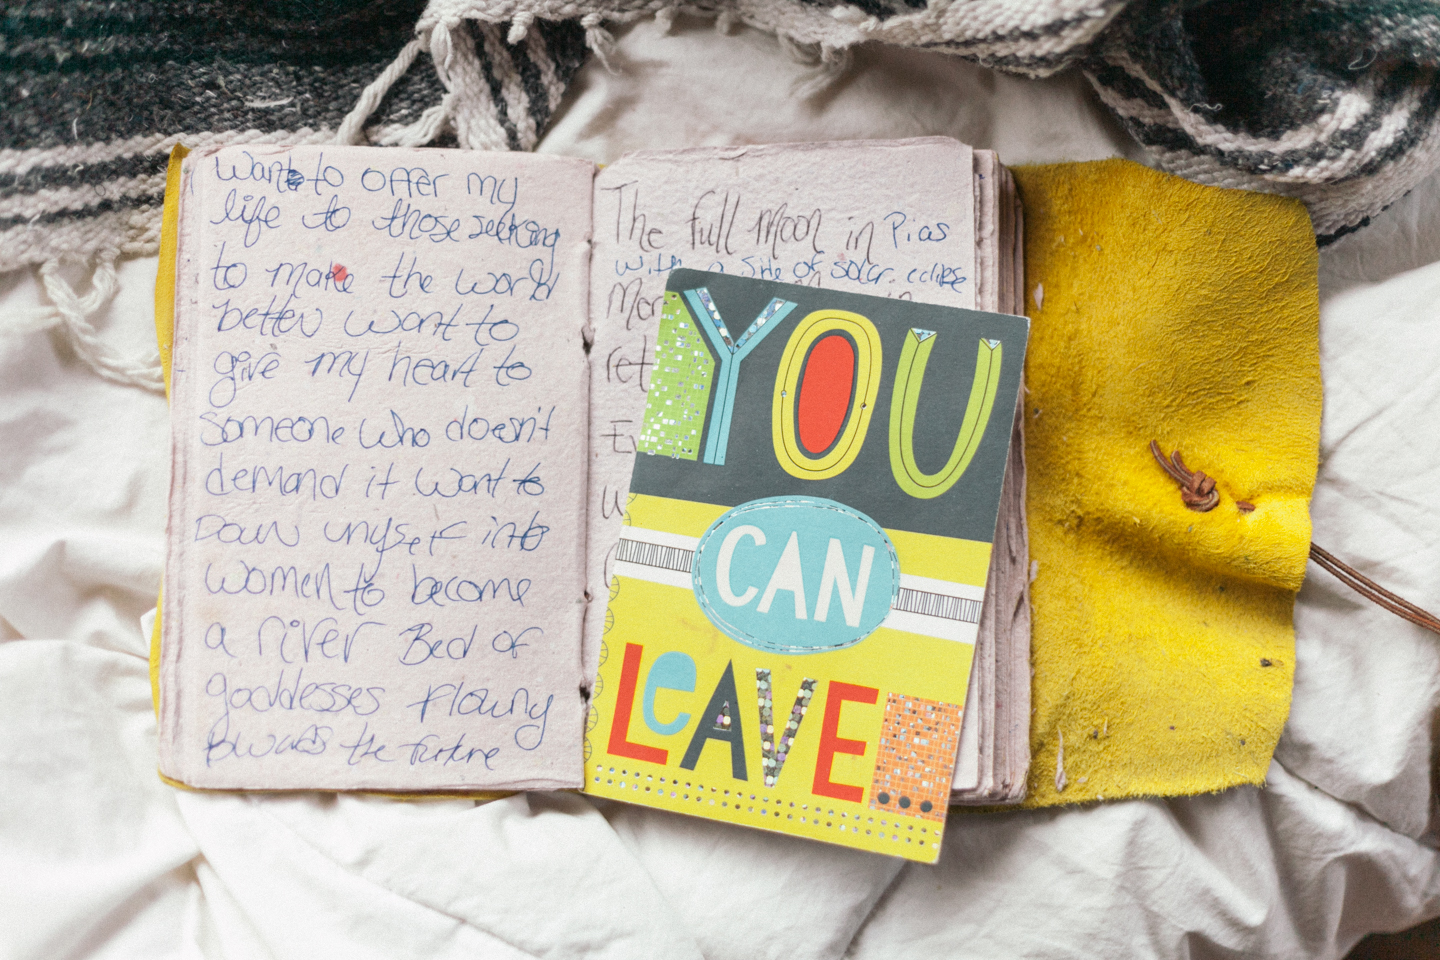 Want to offer my
life to those seeking
to make the world
better want to
give my heart to
someone who doesn't
demand it want to
Down myself into
women to become
a river Bed of
goddesses flowing
the
The full moon in Pias
with a side of solar eclipse
Mor
in
ret
YOU
CAN
LeAVE...